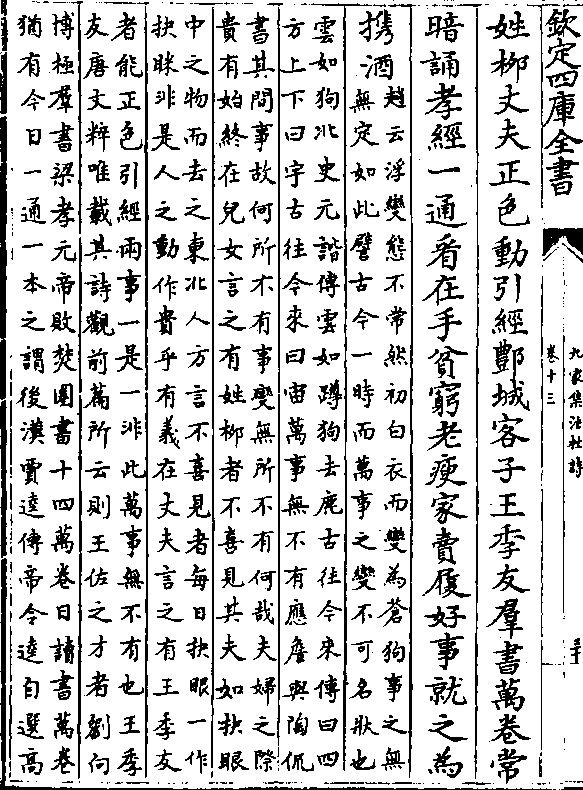 欽定四庫全書
九家集注杜詩
卷十三
姓柳丈夫正色動引經酆城客子王季友羣書萬卷常
暗誦孝經一通看在手貧窮老瘦家賣屐好事就之為
携酒
趙云浮變態不常然初白衣而變為蒼狗事之無
無定如此譬古今一時而萬事之變不可名狀也
雲如狗北史元諧傳雲如蹲狗去鹿古往今來傳曰四
方上下曰宇古往今來曰宙萬事無不有應詹與陶侃
書其間事故何所不有事變無所不有何哉夫婦之際
貴有始終在兒女言之有姓柳者不喜見其夫如抉眼
中之物而去之東北人方言不喜見者每日抉眼一作
抉眯非是人之動作貴乎有義在丈夫言之有王季友
者能正色引經兩事一是一非此萬事無不有也王季
友唐文粹唯載其詩觀前篇所云則王佐之才者劉向
博極羣書梁孝元帝敗焚圖書十四萬卷日讀書萬卷
猶有今日一通一本之謂後漢賈逵傳帝令逵自選高